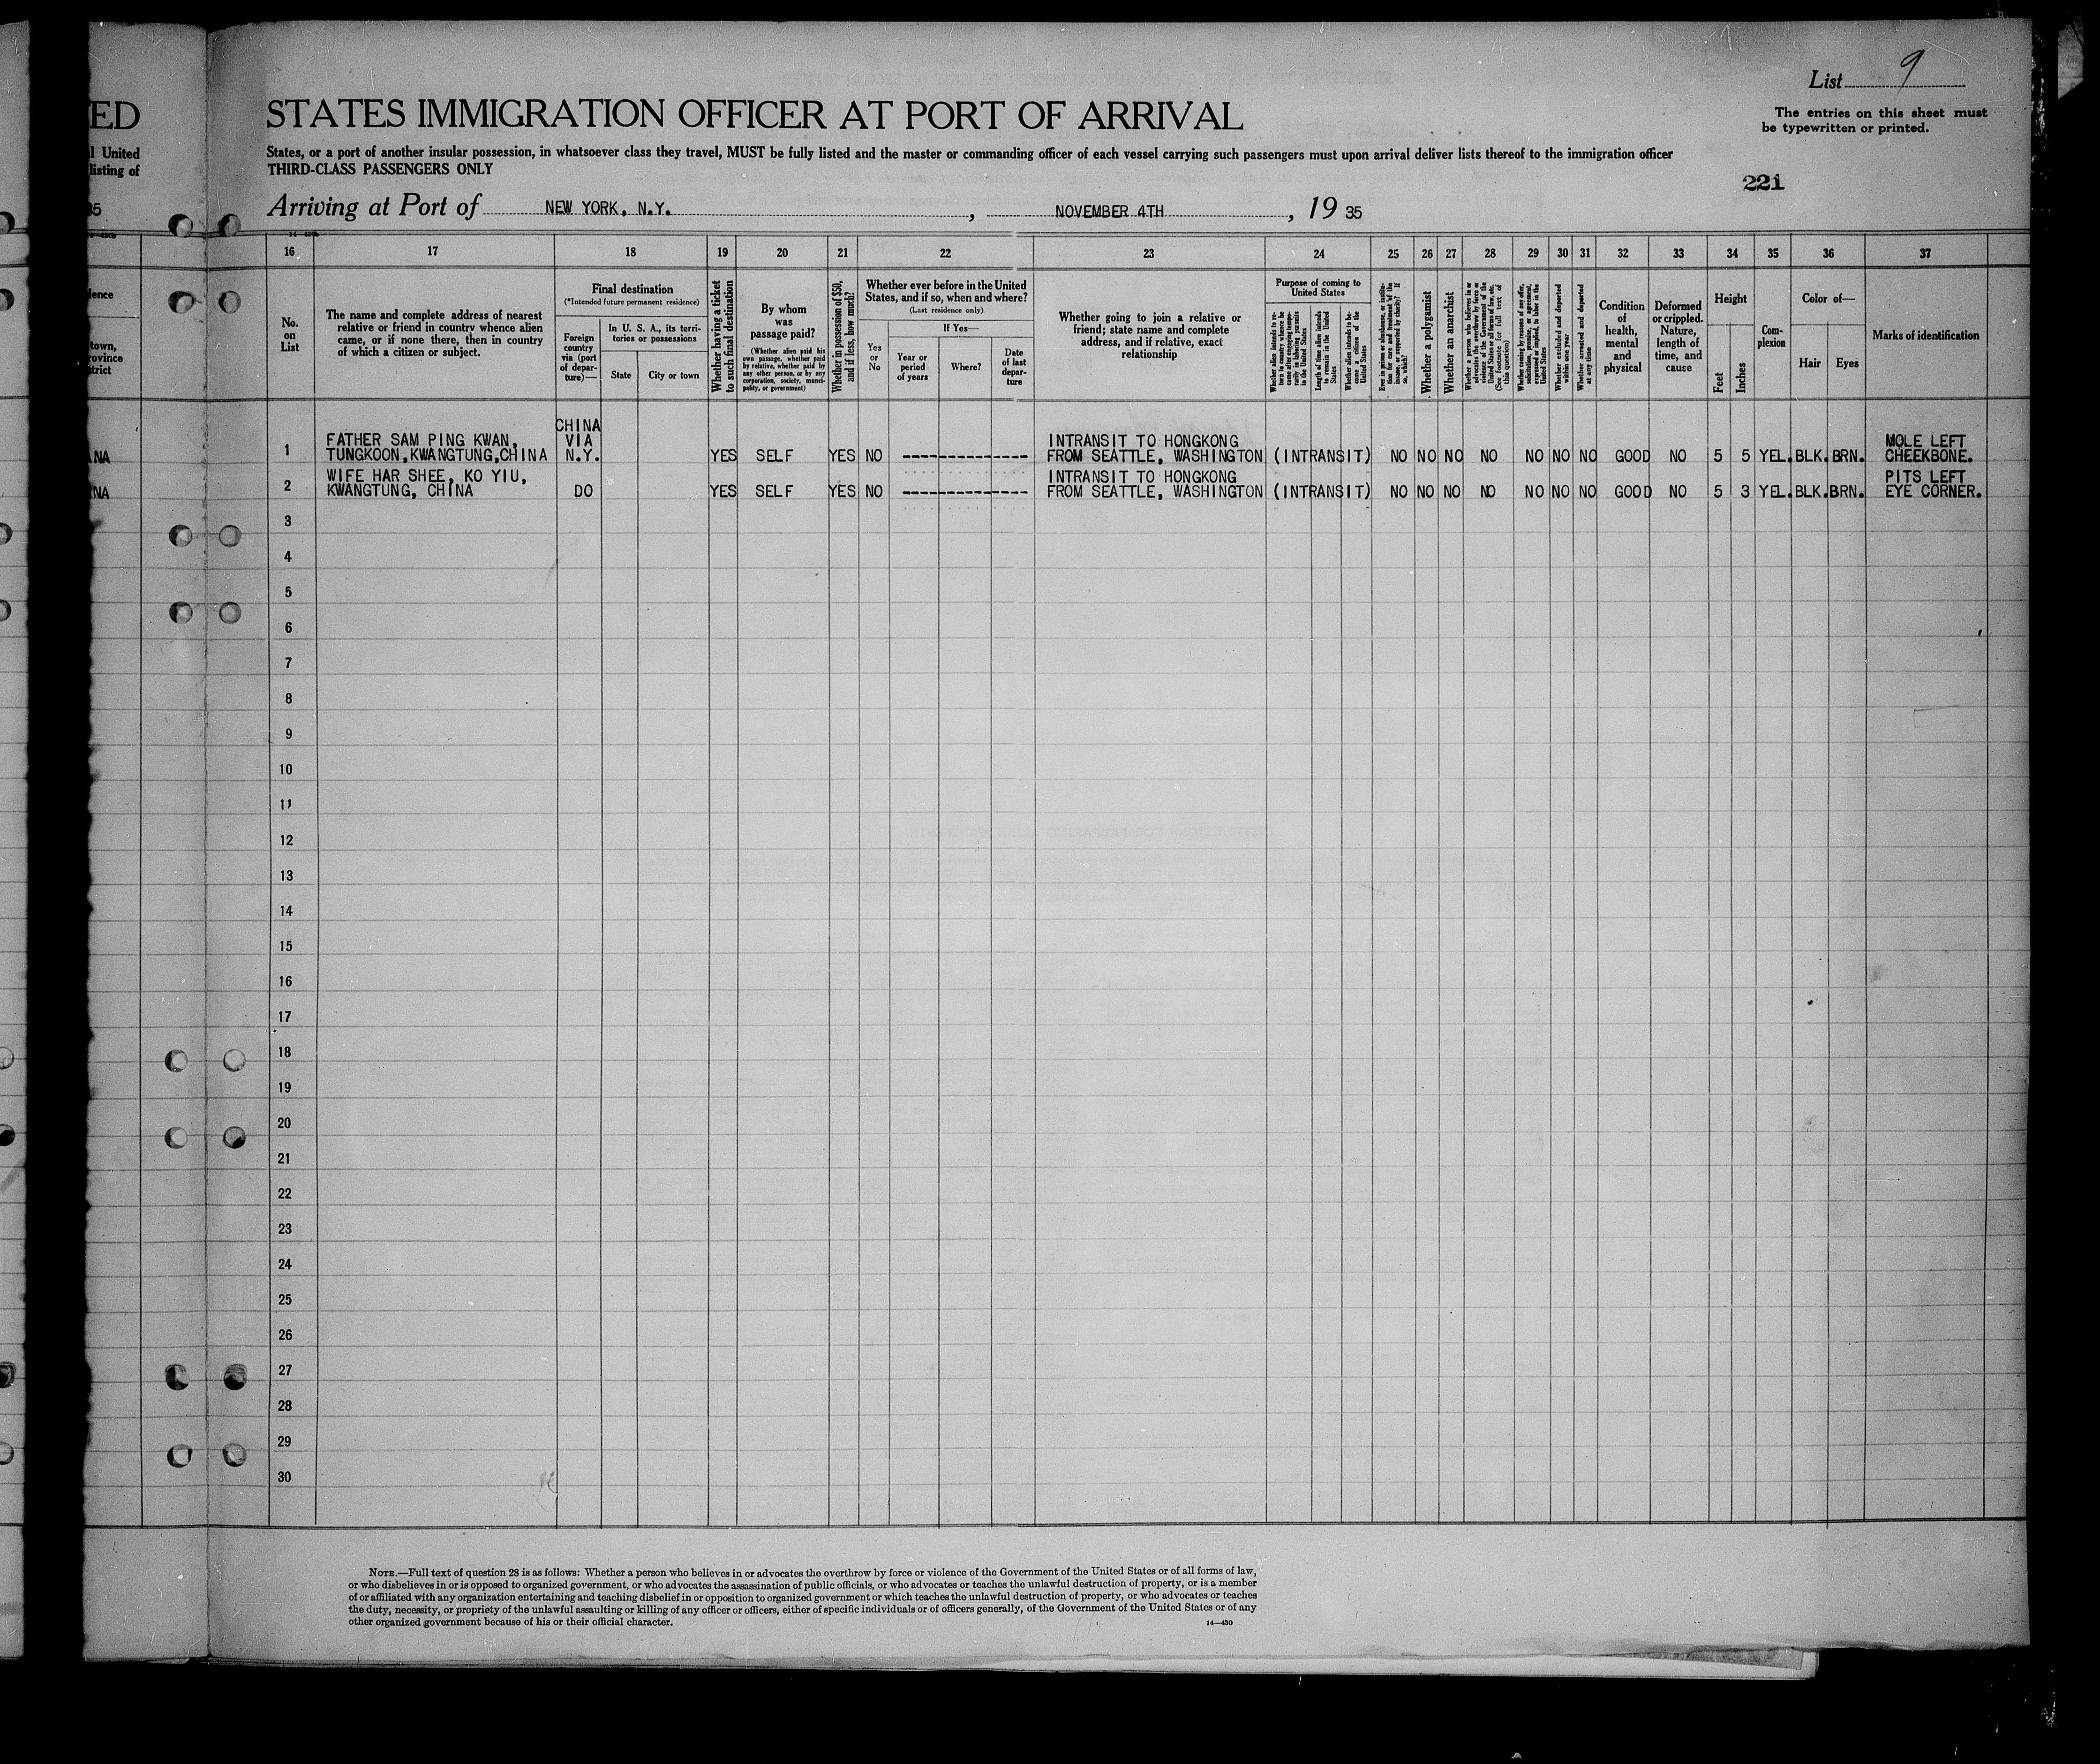 List 9
The entries on this sheet must
be typewritten or printed.
221
ED
STATES IMMIGRATION OFFICER AT PORT OF ARRIVAL
l United
listing of
States, or a port of another insular possession, in whatsoever class they travel, MUST be fully listed and the master or commanding officer of each vessel carrying such passengers must upon arrival deliver lists thereof to the immigration officer
THIRD-CLASS PASSENGERS ONLY
35
Arriving at Port of NEW YORK, N.Y. , NOVEMBER 4TH , 19 35
16 17 18 19 20 21 22 23 24 25 26 27 28 29 30 31 32 33 34 35 36 37
No.
on
List
The name and complete address of nearest
relative or friend in country whence alien
came, or if none there, then in country
of which a citizen or subject.
Final destination
(*Intended future permanent residence)
Foreign
country
via (port
of depar-
ture)—
In U. S. A., its terri-
tories or possessions
State
City or town
Whether having a ticket
to such final destination
By whom
was
passage paid?
(Whether alien paid his
own passage, whether paid
by relative, whether paid by
any other person, or by any
corporation, society, munci-
pality, or government)
Whether in possession of $50,
and if less, how much?
Whether ever before in the United
States, and if so, when and where?
(Last residence only)
Yes
or
No
If Yes—
Year or
period
of years
Where?
Date
of last
depar-
ture
Whether going to join a relative or
friend; state name and complete
address, and if relative, exact
relationship
Purpose of coming to
United States
Whether alien intends to re-
turn to country whence he
came after engaging tempo-
rarily in laboring pursuits
in the United States
Length of time alien intends
to remain in the United
States
Whether alien intends to be-
come a citizen of the
United States
Ever in prison or almshouse, or institu-
tion for care and treatment of the
insane, or supported by charity? If
so, which?
Whether a polygamist
Whether an anarchist
Whether a person who believes in or
advocates the overthrow by force or
violence of the Government of the
United States or all forms of law, etc.
(See footnote for full text of
this question)
Whether coming by reasons of any offer,
solicitation, promise, or agreement,
expressed or implied, to labor in the
United States
Whether excluded and deported
within one year
Whether arrested and deported
at any time
Condition
of
health,
mental
and
physical
Deformed
or crippled.
Nature,
length of
time, and
cause
Height
Feet
Inches
Com-
plexion
Color of—
Hair
Eyes
Marks of identification
lence
town,
rovince
strict
NA
1 FATHER SAM PING KWAN, CHINA VIA INTRANSIT TO HONGKONG MOLE LEFT
TUNGKOON,KWANGTUNG,CHINA N.Y. YES SELF YES NO ------------- FROM SEATTLE, WASHINGTON (INTRANSIT) NO NO NO NO NO NO NO GOOD NO 5 5 YEL. BLK. BRN. CHEEKBONE.
NA
2 WIFE HAR SHEE, KO YIU, INTRANSIT TO HONGKONG PITS LEFT
KWANGTUNG, CHINA DO YES SELF YES NO ------------- FROM SEATTLE, WASHINGTON (INTRANSIT) NO NO NO NO NO NO NO GOOD NO 5 3 YEL. BLK. BRN. EYE CORNER.
3
4
5
6
7
8
9
10
11
12
13
14
15
16
17
18
19
20
21
22
23
24
25
26
27
28
29
30
NOTE.—Full text of question 28 is as follows: Whether a person who believes in or advocates the overthrow by force or violence of the Government of the United States or of all forms of law,
or who disbelieves in or is opposed to organized government, or who advocates the assassination of public officials, or who advocates or teaches the unlawful destruction of property, or is a member
of or affiliated with any organization entertaining and teaching disbelief in or opposition to organized government or which teaches the unlawful destruction of property, or who advocates or teaches
the duty, necessity, or propriety of the unlawful assaulting or killing of any officer or officers, either of specific individuals or of officers generally, of the Government of the United States or of any
other organized government because of his or their official character.
14—430